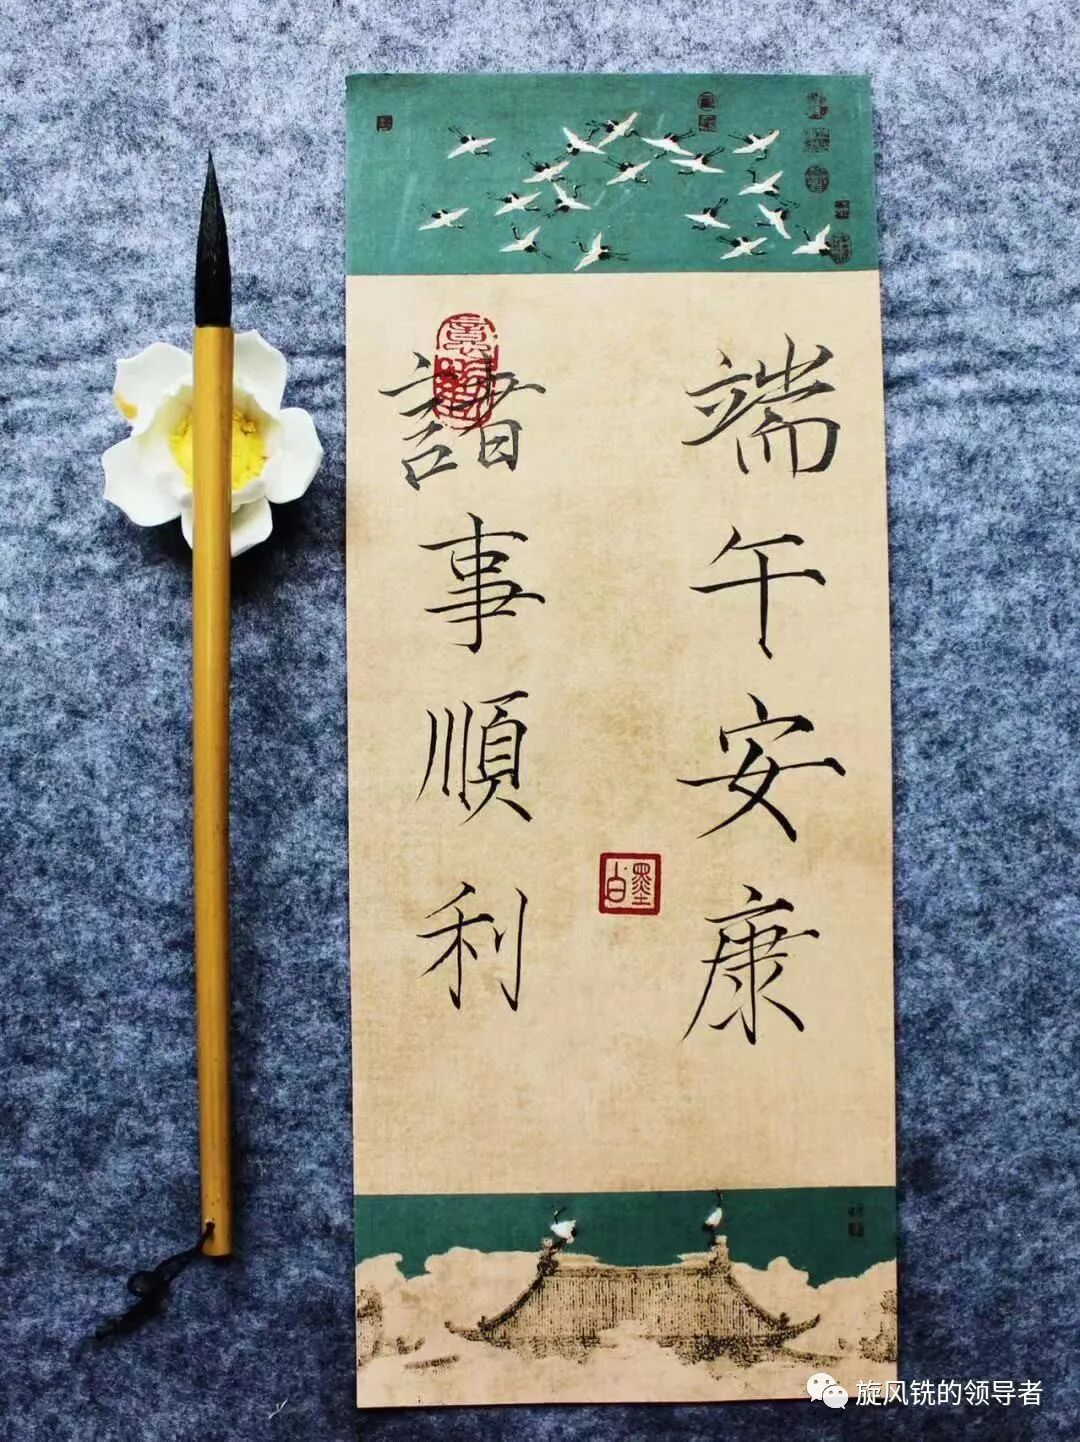 端午安康
諸事順利
旋风铣的领导者